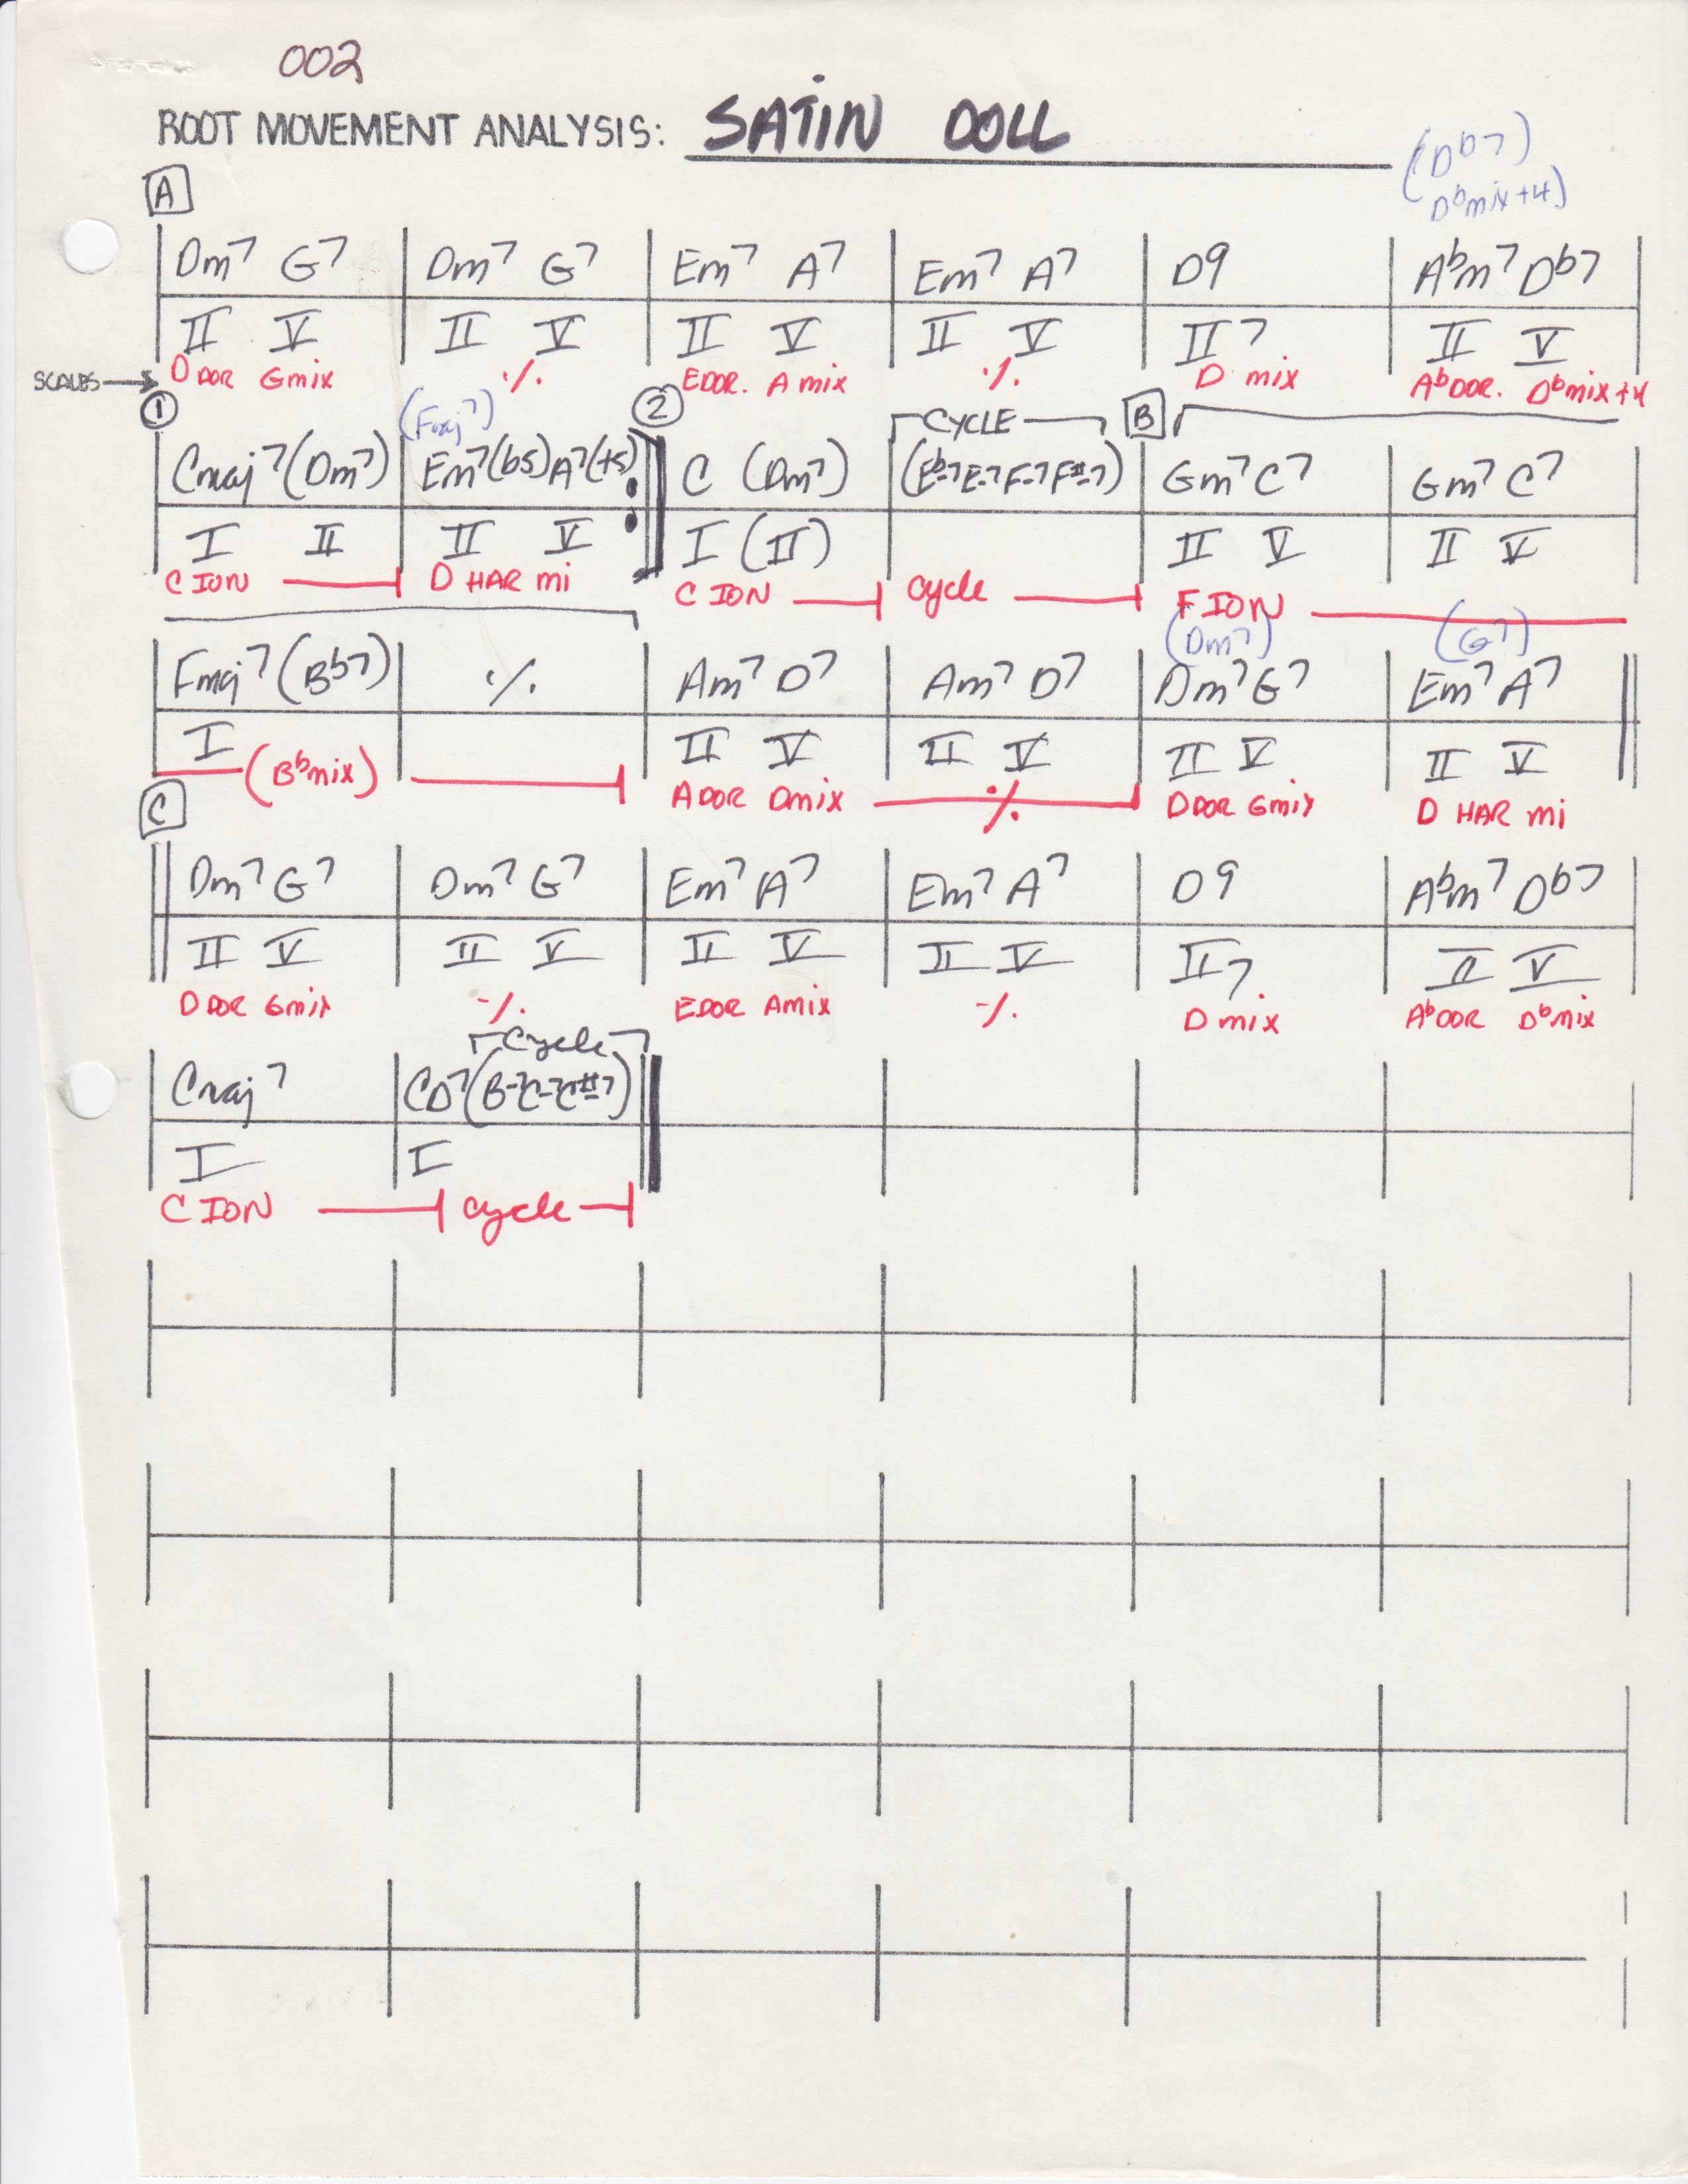 002
ROOT MOVEMENT ANALYSIS: SATIN DOLL
(Db7)
Dbmix+4)
A
Dm7 G7 Dm7 G7 Em7 A7 Em7 A7 D9 Abm7 Db7
II V II V II V II V II7 II V
SCALES → D DOR Gmix ٪ E DOR. A mix ٪ D mix Ab DOR. Dbmix+4
1 (Fmaj7) 2 CYCLE B
Cmaj7(Dm7) Em7(b5)A7(+5) C (Dm7) (Eb-7E-7F-7F#-7) Gm7 C7 Gm7 C7
I II II V I (II) II V II V
C ION D HAR mi C ION cycle F ION
(Dm7) (G7)
Fmaj7(Bb7) ٪ Am7 D7 Am7 D7 Dm7 G7 Em7 A7
I II V II V II V II V
(Bbmix) A DOR Dmix ٪ D DOR Gmix D HAR mi
C
Dm7 G7 Dm7 G7 Em7 A7 Em7 A7 D9 Abm7 Db7
II V II V II V II V II7 II V
D DOR Gmix ٪ E DOR Amix ٪ D mix Ab DOR Dbmix
Cycle
Cmaj7 CD7(B-7C-7C#-7)
I I
C ION cycle